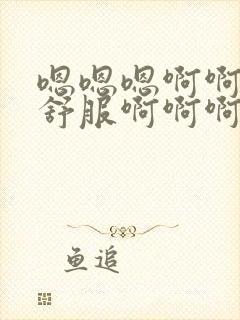 嗯嗯嗯啊啊
舒服啊啊啊
鱼追